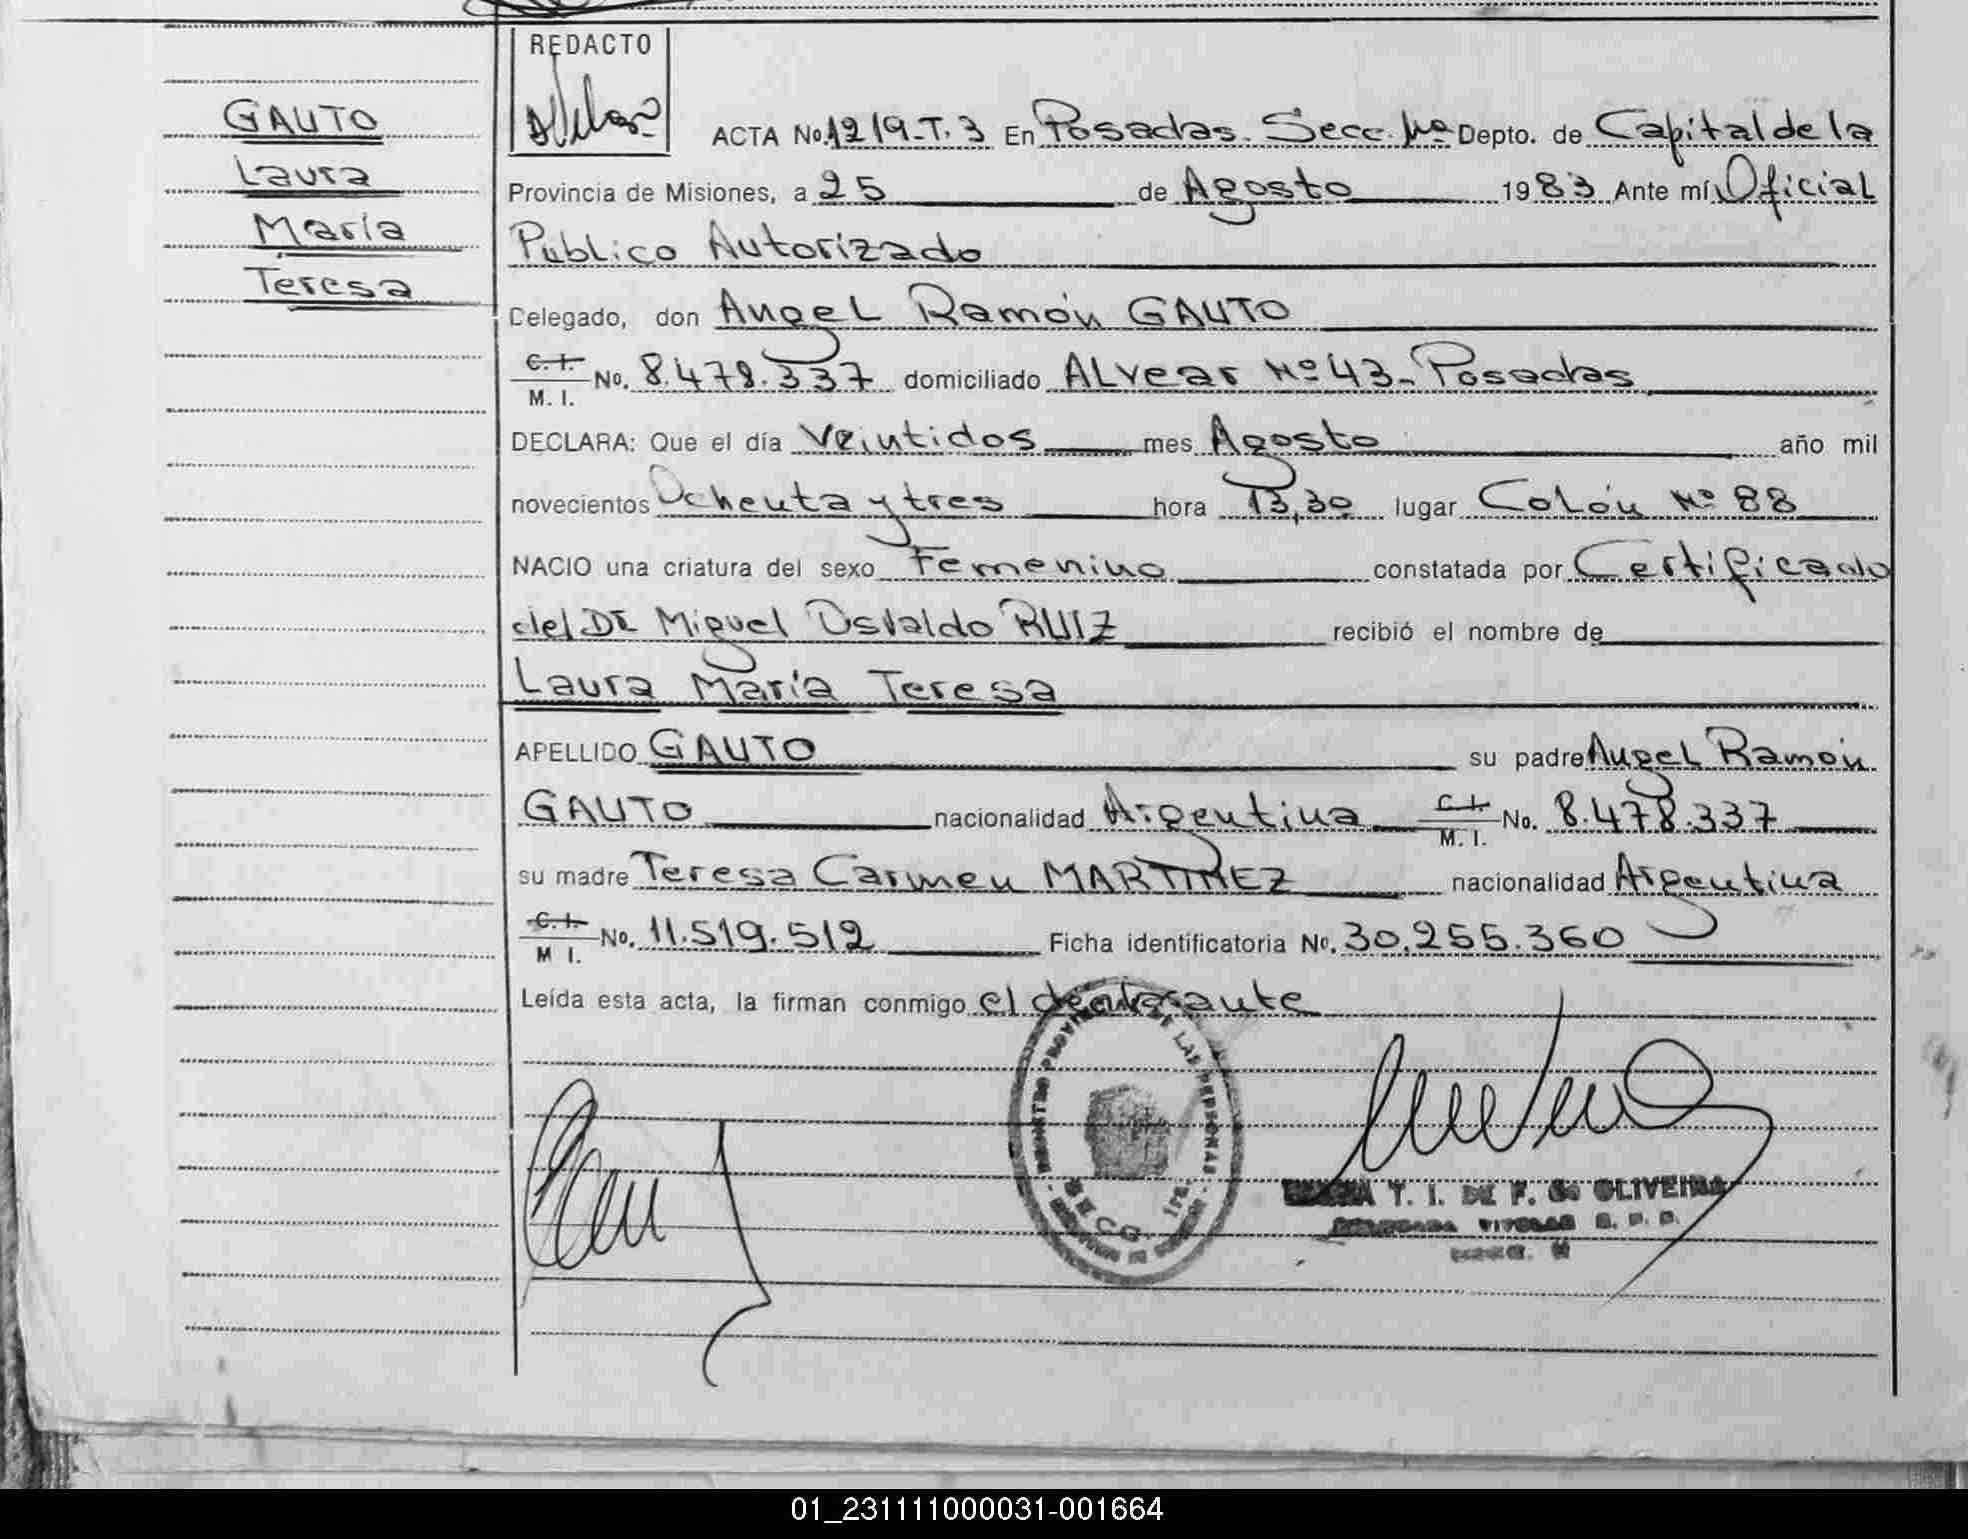 REDACTO
GAUTO
Laura
María
Teresa
ACTA No. 1219-T.3 En Posadas. Secc. Depto. de Capital de la
Provincia de Misiones, a 25 de Agosto 1983 Ante mí, Oficial
Publico Autorizado
Delegado, don Angel Ramón GAUTO
C. I.
M. I. No. 8.478.337 domiciliado ALvear Nº 43- Posadas
DECLARA: Que el día Veintidos mes Agosto año mil
novecientos Ochenta y tres hora 13,30 lugar Colón Nº 88
NACIO una criatura del sexo Femenino constatada por Certificado
del Dr Miguel Osvaldo RUIZ recibió el nombre de
Laura María Teresa
APELLIDO GAUTO su padre Angel Ramón
GAUTO nacionalidad Argentina C. I. M. I. No. 8.478.337
su madre Teresa Carmen MARTINEZ nacionalidad Argentina
C. I.
M. I. No. 11.519.512 Ficha identificatoria No. 30.255.360
Leída esta acta, la firman conmigo el declarante
DE LAS PERSONAS
T. I. DE F. OLIVEIRA
01_231111000031-001664